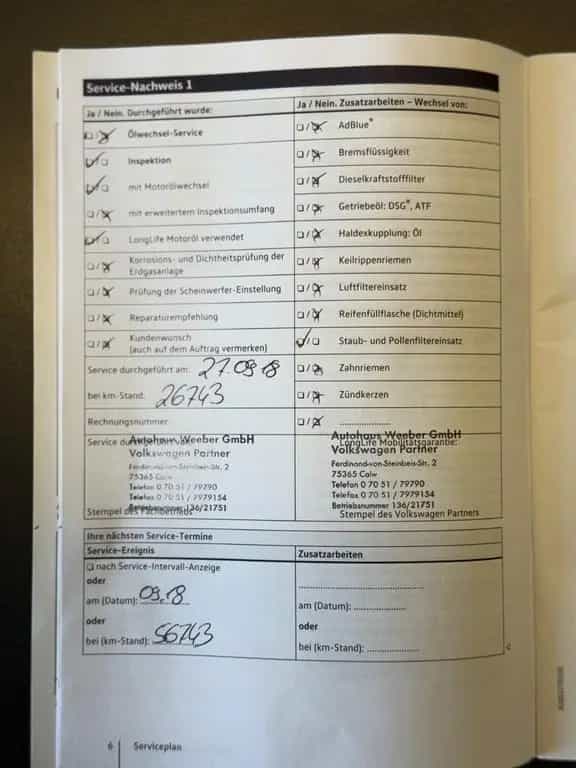 Service-Nachweis 1
Ja / Nein. Durchgeführt wurde:
Ja / Nein. Zusatzarbeiten – Wechsel von:
Ölwechsel-Service
AdBlue®
Inspektion
Bremsflüssigkeit
mit Motorölwechsel
Dieselkraftstofffilter
mit erweitertem Inspektionsumfang
Getriebeöl: DSG®, ATF
LongLife Motoröl verwendet
Haldexkupplung: Öl
Korrosions- und Dichtheitsprüfung der
Erdgasanlage
Keilrippenriemen
Prüfung der Scheinwerfer-Einstellung
Luftfiltereinsatz
Reparaturempfehlung
Reifenfüllflasche (Dichtmittel)
Kundenwunsch
(auch auf dem Auftrag vermerken)
Staub- und Pollenfiltereinsatz
Service durchgeführt am: 27.09.18
Zahnriemen
bei km-Stand: 26743
Zündkerzen
Rechnungsnummer:
Service durchgeführt
LongLife Mobilitätsgarantie:
Autohaus Weeber GmbH
Volkswagen Partner
Ferdinand-von-Steinbeis-Str. 2
75365 Calw
Telefon 0 70 51 / 79790
Telefax 0 70 51 / 7979154
Betriebsnummer 136/21751
Stempel des Fachbetriebs
Autohaus Weeber GmbH
Volkswagen Partner
Ferdinand-von-Steinbeis-Str. 2
75365 Calw
Telefon 0 70 51 / 79790
Telefax 0 70 51 / 7979154
Betriebsnummer 136/21751
Stempel des Volkswagen Partners
Ihre nächsten Service-Termine
Service-Ereignis
Zusatzarbeiten
nach Service-Intervall-Anzeige
oder
am (Datum): 09.18
am (Datum):
oder
oder
bei (km-Stand): 56743
bei (km-Stand):
6 Serviceplan